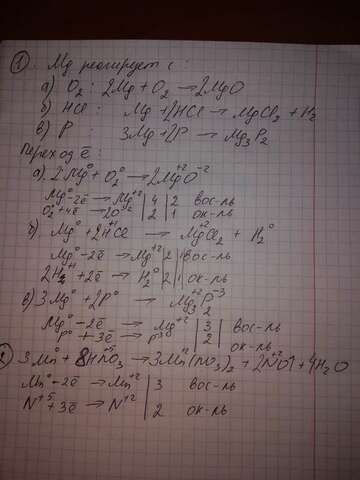 ① Mg реагирует с:
а) O₂: 2Mg + O₂ → 2MgO
б) HCl: Mg + 2HCl → MgCl₂ + H₂
в) P: 3Mg + 2P → Mg₃P₂
Переход ē:
а) 2Mg⁰ + O₂⁰ → 2Mg⁺²O⁻²
Mg⁰ - 2ē → Mg⁺² | 4 | 2 вос-ль
O₂⁰ + 4ē → 2O⁻² | 2 | 1 ок-ль
б) Mg⁰ + 2H⁺¹Cl → Mg⁺²Cl₂ + H₂⁰
Mg⁰ - 2ē → Mg⁺² | 2 | 1 вос-ль
2H⁺¹ + 2ē → H₂⁰ | 2 | 1 ок-ль
в) 3Mg⁰ + 2P⁰ → Mg₃⁺²P₂⁻³
Mg⁰ - 2ē → Mg⁺² | 3 | вос-ль
P⁰ + 3ē → P⁻³ | 2 | ок-ль
② 3Mn⁰ + 8HN⁺⁵O₃ → 3Mn⁺²(NO₃)₂ + 2N⁺²O↑ + 4H₂O
Mn⁰ - 2ē → Mn⁺² | 3 вос-ль
N⁺⁵ + 3ē → N⁺² | 2 ок-ль